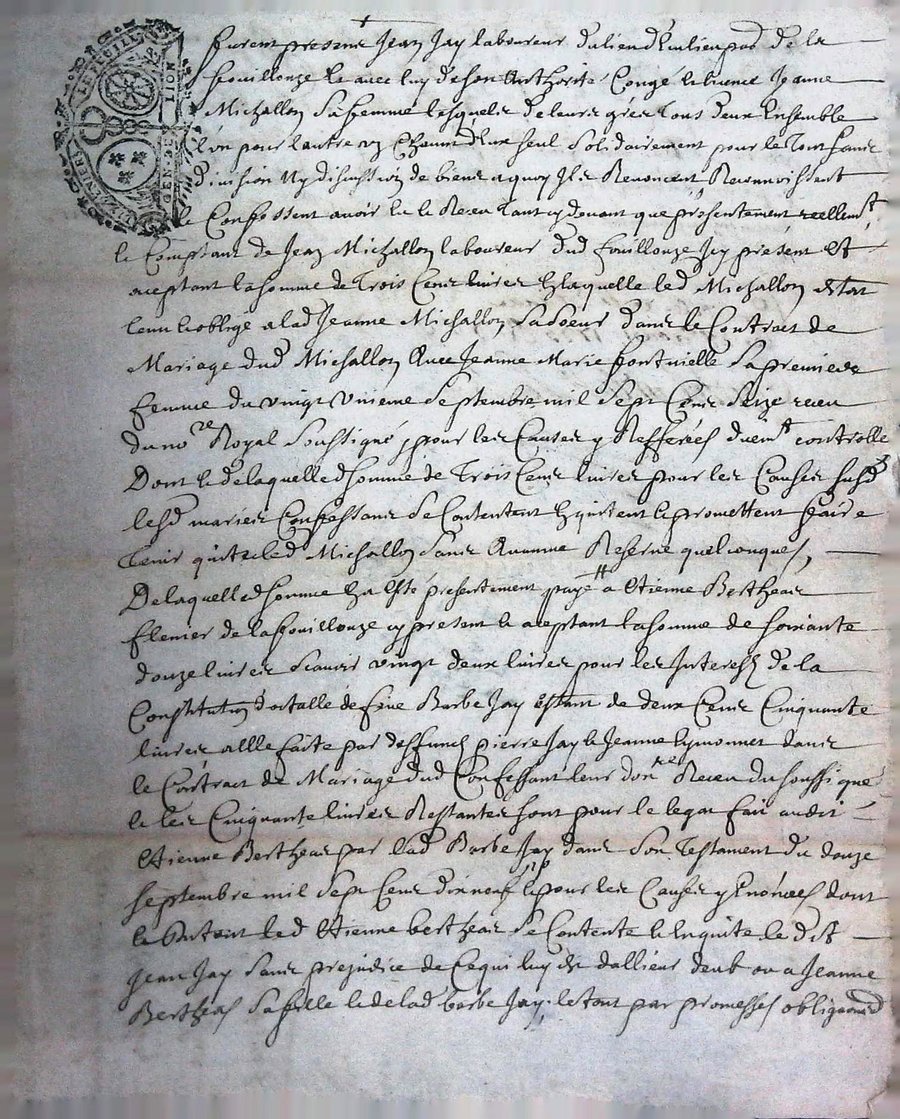 LE FEUILLET
LION
furent presens Jean Jay laboureur du lieu de la
fouillouze et avec luy de son authorité congé licence Jeanne
Michallon sa femme lesquels de leurs grés tous deux ensemble
l'un pour l'autre un chacun d'eux seul solidairement pour le tout sans
division ny discussion de biens a quoy ils Renoncent Reconnoissent
et Confessent avoir eu et Receu tant cy devant que presentement reellemt
et Comptant de Jean Michallon laboureur dud fouillouze Icy present et
aceptant la somme de Trois Cens livres a laquelle led Michallon estoit
tenu et obligé a lad Jeanne Michallon sa soeur dans le Contract de
Mariage dud Michallon avec Jeanne Marie fontvielle sa premiere
femme du vingt unieme septembre mil sept Cens seize receu
du nore Royal soussigné, pour les Causes y Refferées duemt controllé
Dont et de laquelle d somme de Trois Cens livres pour les Causes susd
lesd mariés Confessans se Contentent et quitent et promettent faire
tenir quite led Michallon sans aucune Reserve quelconques,
De laquelle d somme a esté presentement payé a Etienne Bertheas
de la fouillouze cy present et aceptant la somme de soixante
douze livres scavoir vingt deux livres pour les Interests de la
Constitution dotalle de feüe Barbe Jay estant de deux Cens Cinquante
livres a elle faite par deffunts pierre Jay et Jeanne dans
le Contract de Mariage dud Confessant Receu du soussigné
et les Cinquante livres Restantes sont pour le legat fait audit
Etienne Bertheas par lad Barbe Jay dans son Testament du douze
septembre mil sept Cens dix neuf et pour les Causes y Enoncées dont
et du tout led Etienne bertheas se Contente et en quite le dit
Jean Jay sans prejudice de Ce qui luy est d'allieurs deub ou a Jeanne
Bertheas sa fille et de lad barbe Jay, le tout par promesses obligaons